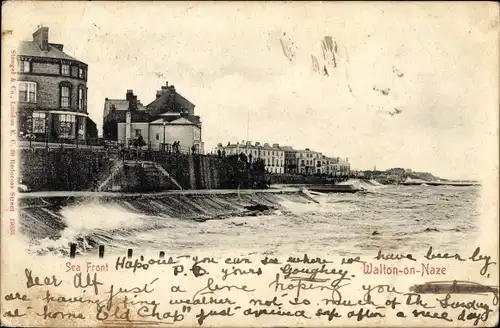 Stengel & Co., London E. C. 39 Redcross Str. 19865
Sea Front
Walton-on-Naze
Hap'one you can see where we have been by
P. C. yours Goughey
Dear Alf Just a line hoping you
are having fine weather not so much of the Sunday
at home Old Chap" just arrived safe after a nice day